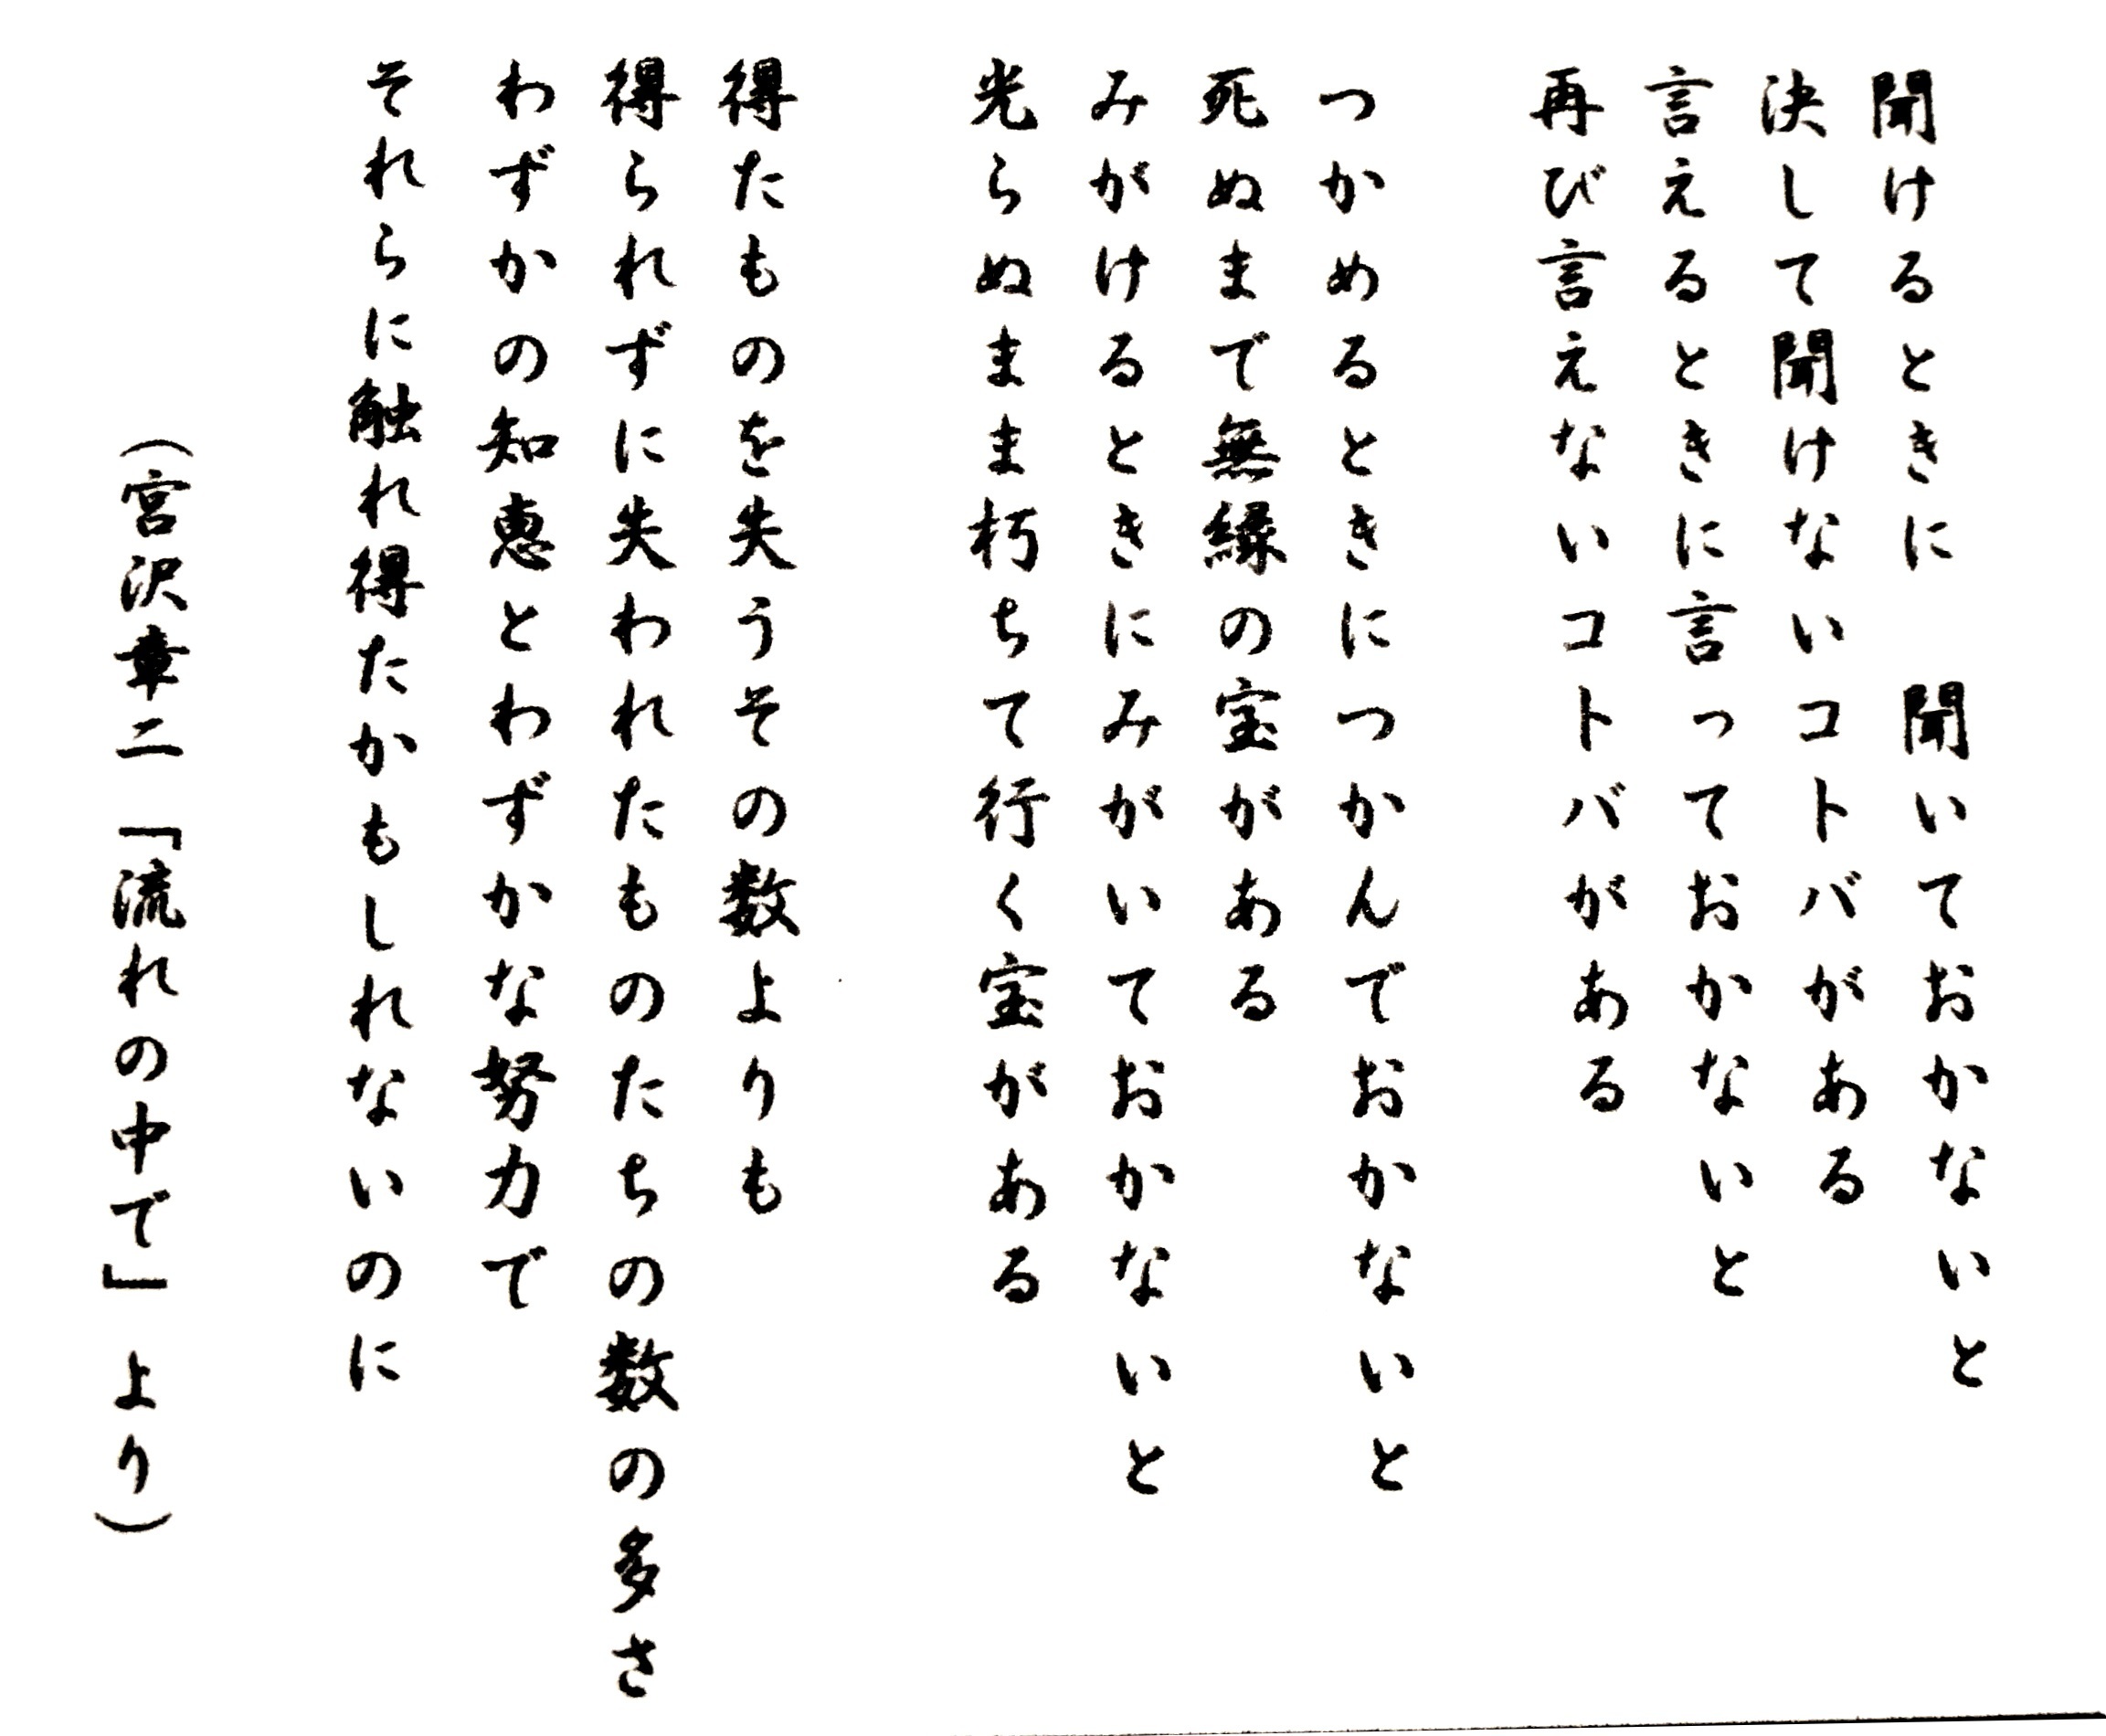 聞けるときに　聞いておかないと
決して聞けないコトバがある
言えるときに言っておかないと
再び言えないコトバがある
つかめるときにつかんでおかないと
死ぬまで無縁の宝がある
みがけるときにみがいておかないと
光らぬまま朽ちて行く宝がある
得たものを失うその数よりも
得られずに失われたものたちの数の多さ
わずかの知恵とわずかな努力で
それらに触れ得たかもしれないのに
（宮沢章二「流れの中で」より）